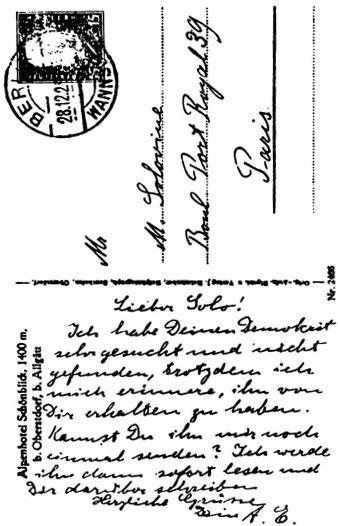 15
BER
28.12.2
WANNS
Mr
M. Solovine
Boul Port Royal 39
Paris
Nr. 2486
Alpenhotel Schönblick, 1400 m,
b. Oberstdorf, b. Allgäu
Lieber Solo!
Ich habe Deinen Demokrit
sehr gesucht und nicht
gefunden, trotzdem ich
mich erinnere, ihn von
Dir erhalten zu haben.
Kannst Du ihn mir noch
einmal senden? Ich werde
ihn dann sofort lesen und
Dir darüber schreiben
Herzliche Grüsse
Dein A. E.